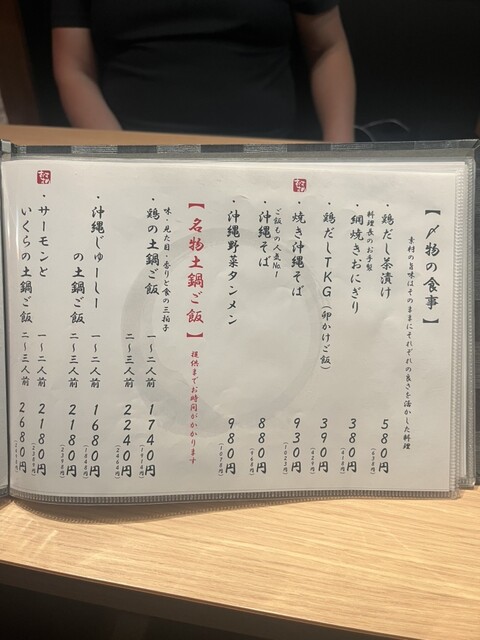 【〆物の食事】
素材の旨味はそのままにそれぞれの良さを活かした料理
・鶏だし茶漬け 580円
(638円)
料理長のお手製
・網焼きおにぎり 380円
(418円)
・鶏だしTKG(卵かけご飯) 390円
(429円)
・焼き沖縄そば 930円
(1023円)
ご飯もの人気No.1
・沖縄そば 880円
(968円)
・沖縄野菜タンメン 980円
(1078円)
【名物土鍋ご飯】 提供までお時間がかかります
味・見た目・香りと食の三拍子
・鶏の土鍋ご飯 一~二人前 1740円
(1914円)
二~三人前 2240円
(2464円)
・沖縄じゅーしー
の土鍋ご飯 一~二人前 1680円
(1848円)
二~三人前 2180円
(2398円)
・サーモンと
いくらの土鍋ご飯 一~二人前 2180円
二~三人前 2680円